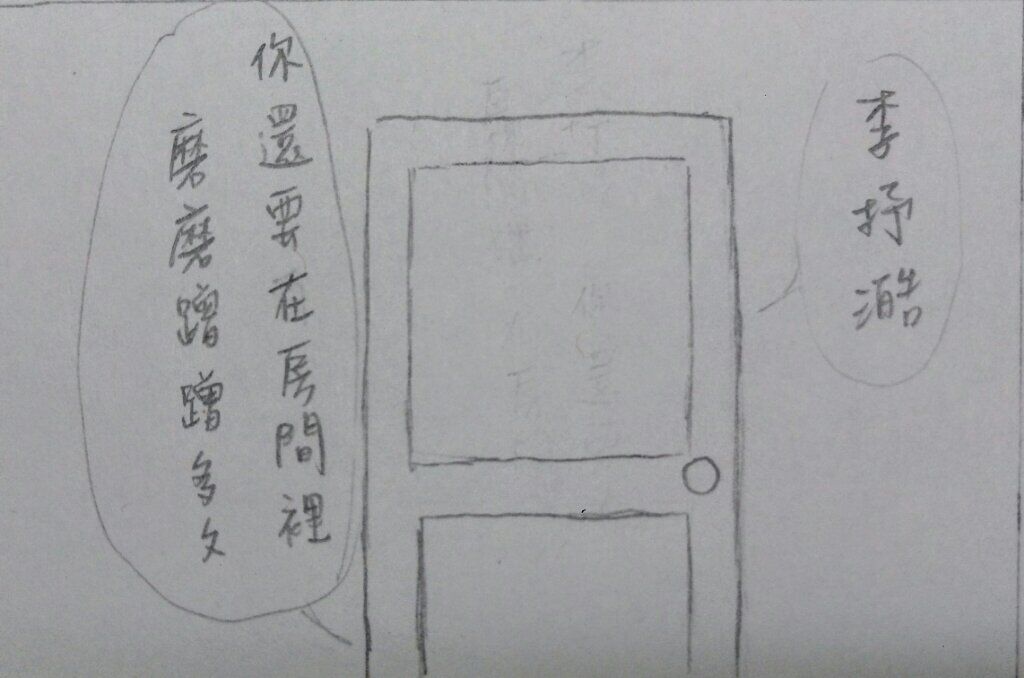 李抒澔
你還要在房間裡
磨磨蹭蹭多久